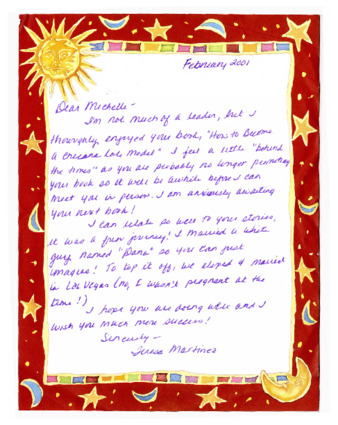 February 2001
Dear Michelle -
I'm not much of a reader, but I
thoroughly enjoyed your book, "How to Become
a Chicana Role Model." I feel a little "behind
the times" as you are probably no longer promoting
your book so it will be awhile before I can
meet you in person. I am anxiously awaiting
your next book!
I can relate so well to your stories,
it was a fun journey! I married a white
guy named "Dana" so you can just
imagine! To top it off, we eloped & married
in Las Vegas (no, I wasn't pregnant at the
time!)
I hope you are doing well and I
wish you much more success!
Sincerely -
Teresa Martinez